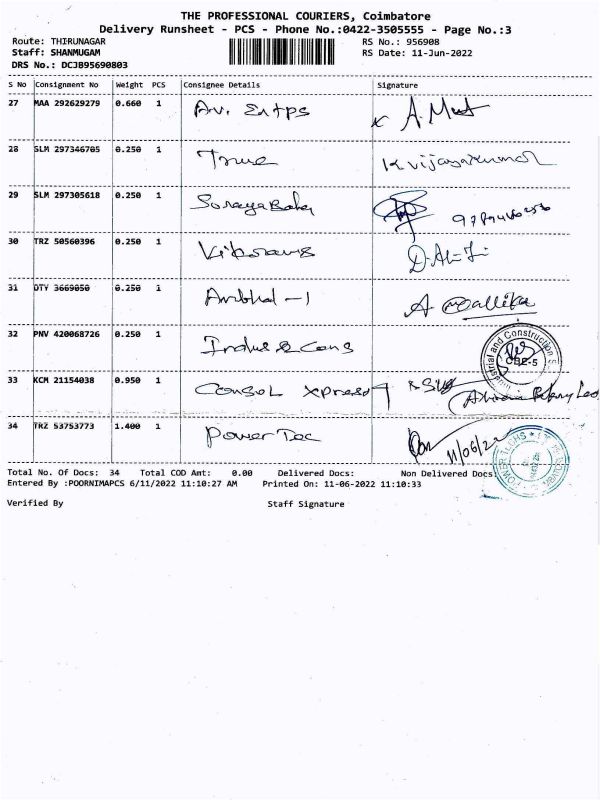 THE PROFESSIONAL COURIERS, Coimbatore
Delivery Runsheet - PCS - Phone No.:0422-3505555 - Page No.:3
Route: THIRUNAGAR RS No.: 956908
Staff: SHANMUGAM RS Date: 11-Jun-2022
DRS No.: DCJB95690803
S No Consignment No Weight PCS Consignee Details Signature
27 MAA 292629279 0.660 1 Av. Entps
28 SLM 297346705 0.250 1 True K vijayakumar
29 SLM 297305618 0.250 1
30 TRZ 50560396 0.250 1
31 DTY 3669050 0.250 1 Ambhal-1 A Mallika
32 PNV 420068726 0.250 1 Indus & Cons
33 KCM 21154038 0.950 1 Consol Xpress
34 TRZ 53753773 1.400 1 Power Tec 11/06/22
Total No. Of Docs: 34 Total COD Amt: 0.00 Delivered Docs: Non Delivered Docs:
Entered By :POORNIMAPCS 6/11/2022 11:10:27 AM Printed On: 11-06-2022 11:10:33
Verified By Staff Signature